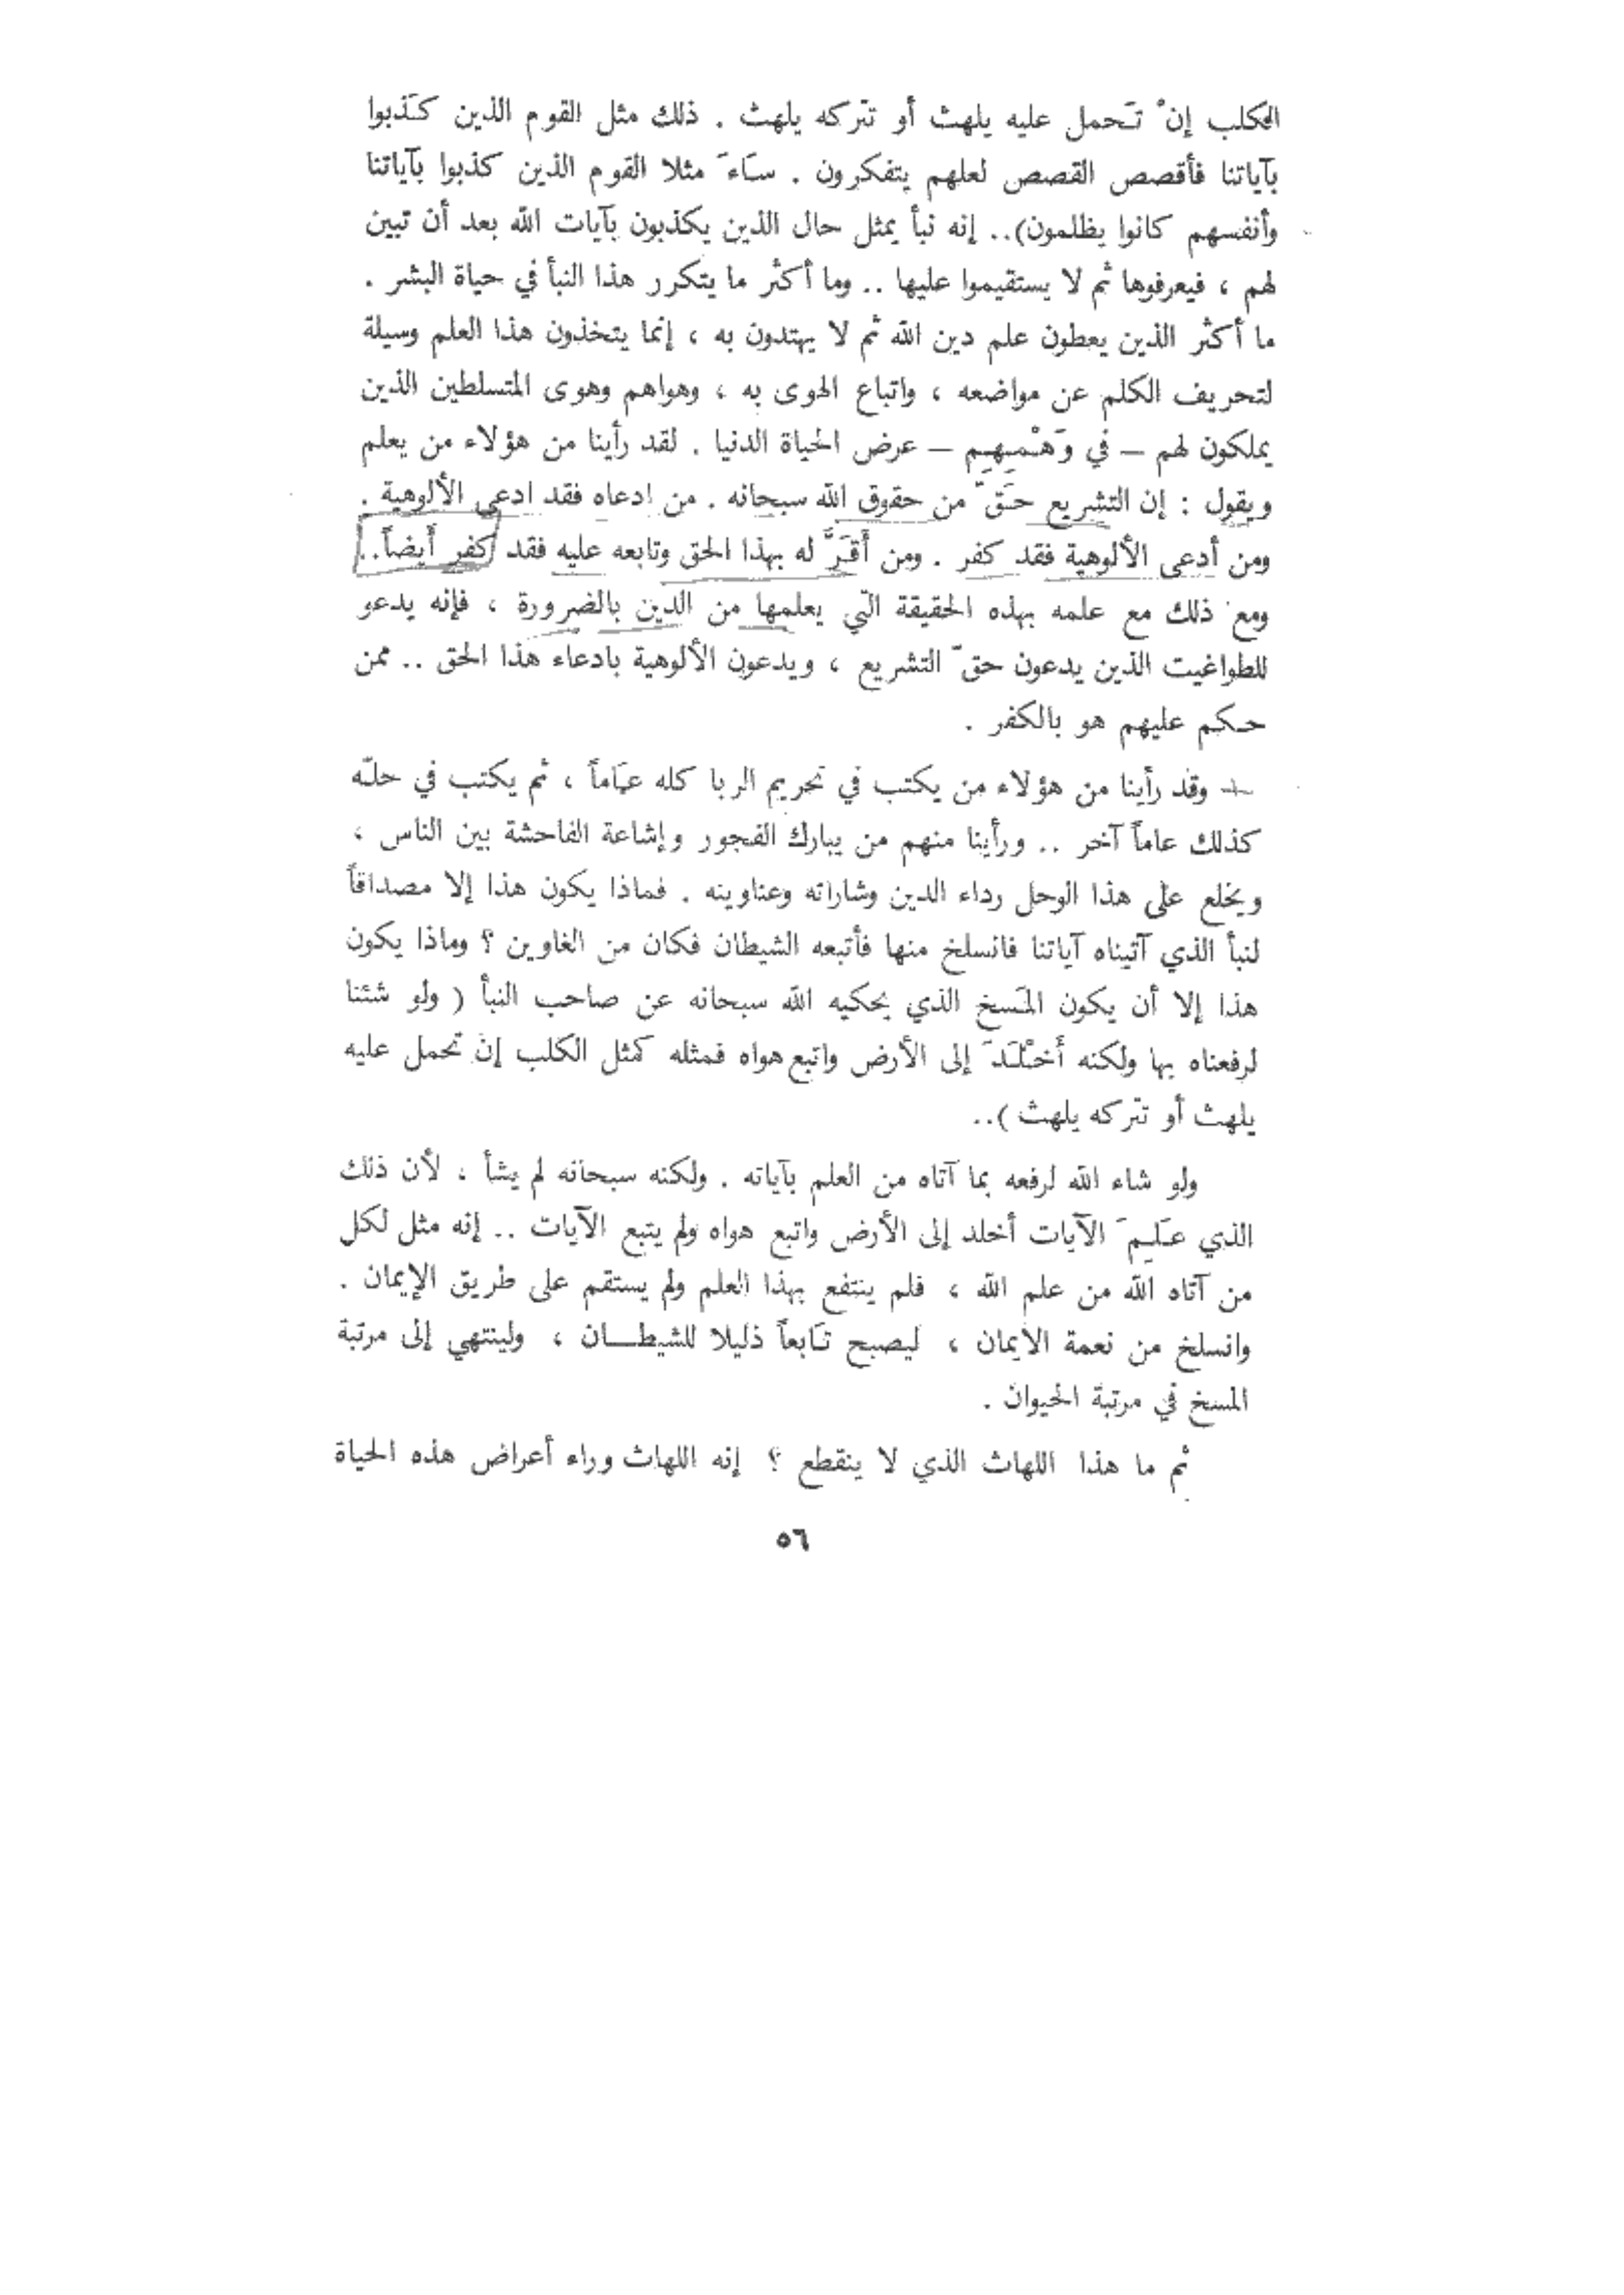 الكلب إنْ تَحمل عليه يلهث أو تتركه يلهث . ذلك مثل القوم الذين كَذبوا
بآياتنا فأقصص القصص لعلهم يتفكرون . سَاءَ مثلا القوم الذين كذبوا بآياتنا
وأنفسهم كانوا يظلمون).. إنه نبأ يمثل حال الذين يكذبون بآيات الله بعد أن تبين
لهم ، فيعرفوها ثم لا يستقيموا عليها .. وما أكثر ما يتكرر هذا النبأ في حياة البشر .
ما أكثر الذين يعطون علم دين الله ثم لا يهتدون به ، إنما يتخذون هذا العلم وسيلة
لتحريف الكلم عن مواضعه ، واتباع الهوى به ، وهواهم وهوى المتسلطين الذين
يملكون لهم – في وَهْمِهِم – عرض الحياة الدنيا . لقد رأينا من هؤلاء من يعلم
ويقول : إن التشريع حَقّ من حقوق الله سبحانه . من ادعاه فقد ادعى الألوهية .
ومن أدعى الألوهية فقد كفر . ومن أَقَرَّ له بهذا الحق وتابعه عليه فقد كفر أيضاً..
ومع ذلك مع علمه بهذه الحقيقة التي يعلمها من الدين بالضرورة ، فإنه يدعو
للطواغيت الذين يدعون حقّ التشريع ، ويدعون الألوهية بادعاء هذا الحق .. ممن
حكم عليهم هو بالكفر .
+ وقد رأينا من هؤلاء من يكتب في تحريم الربا كله عَاماً ، ثم يكتب في حلّه
كذلك عاماً آخر .. ورأينا منهم من يبارك الفجور وإشاعة الفاحشة بين الناس ،
ويخلع على هذا الوحل رداء الدين وشاراته وعناوينه . فماذا يكون هذا إلا مصداقاً
لنبأ الذي آتيناه آياتنا فانسلخ منها فأتبعه الشيطان فكان من الغاوين ؟ وماذا يكون
هذا إلا أن يكون المَسخ الذي يحكيه الله سبحانه عن صاحب النبأ ( ولو شئنا
لرفعناه بها ولكنه أَخْلَدَ إلى الأرض واتبع هواه فمثله كمثل الكلب إن تحمل عليه
يلهث أو تتركه يلهث )..
ولو شاء الله لرفعه بما آتاه من العلم بآياته . ولكنه سبحانه لم يشأ ، لأن ذلك
الذي عَلِمَ الآيات أخلد إلى الأرض واتبع هواه ولم يتبع الآيات .. إنه مثل لكل
من آتاه الله من علم الله ، فلم ينتفع بهذا العلم ولم يستقم على طريق الإيمان .
وانسلخ من نعمة الايمان ، ليصبح تَابعاً ذليلا للشيطـــان ، ولينتهي إلى مرتبة
المسخ في مرتبة الحيوان .
ثم ما هذا اللهاث الذي لا ينقطع ؟ إنه اللهاث وراء أعراض هذه الحياة
٥٦